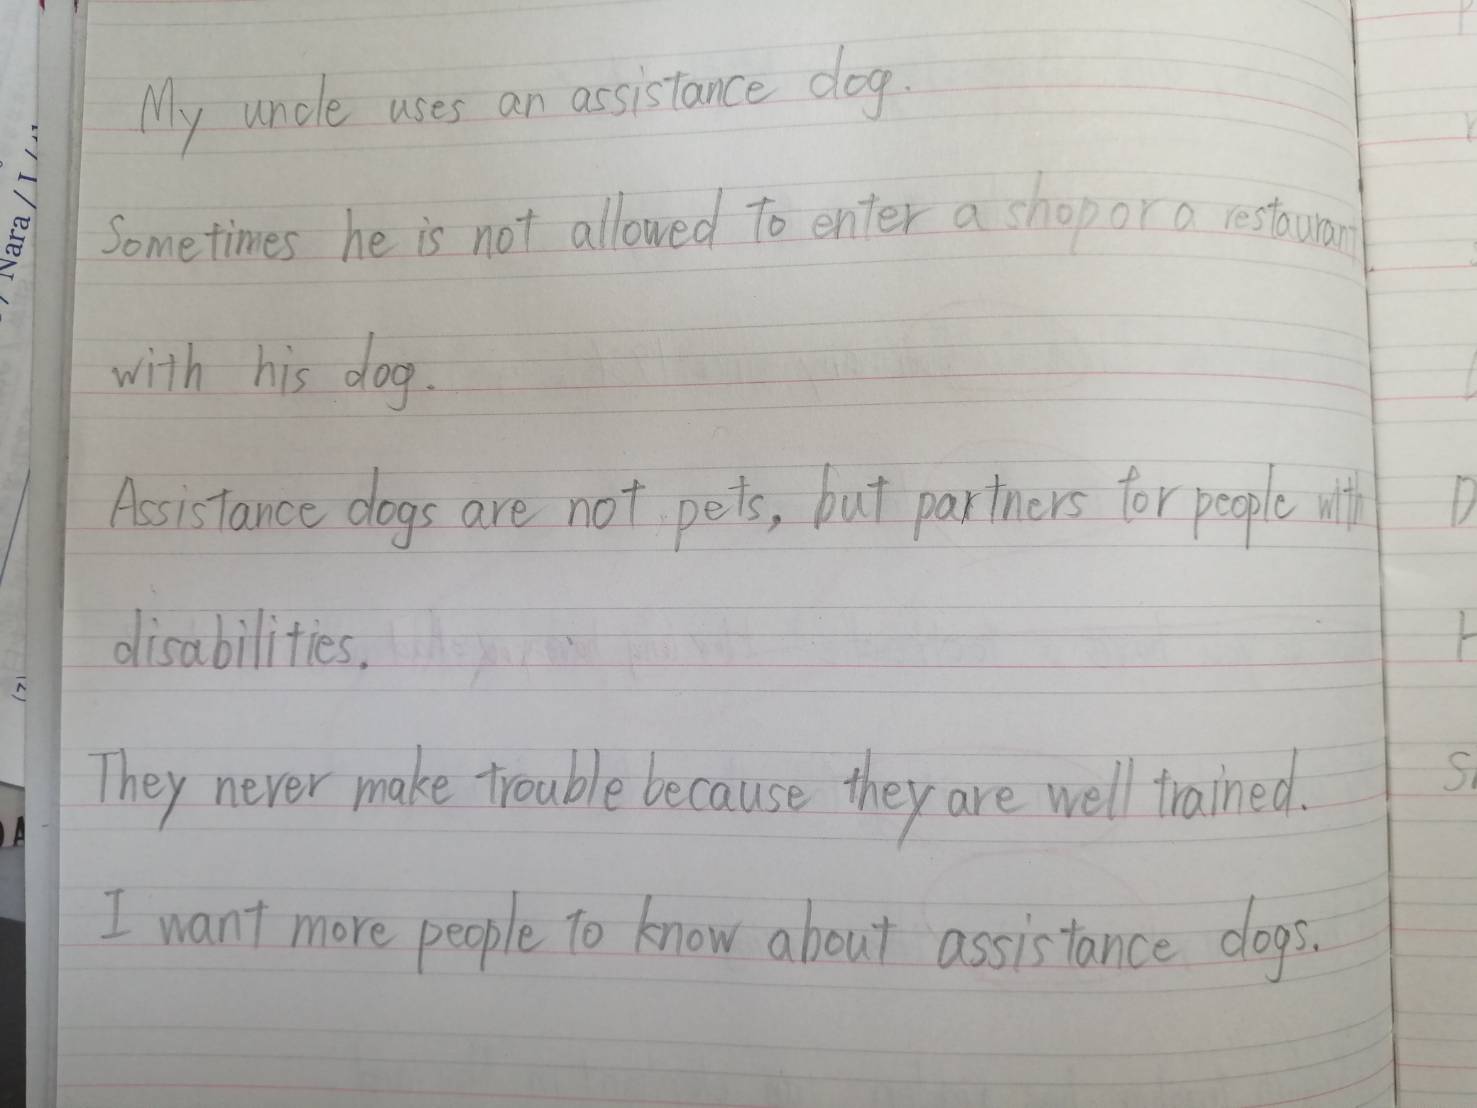 My uncle uses an assistance dog.
Sometimes he is not allowed to enter a shop or a restaurant
with his dog.
Assistance dogs are not pets, but partners for people with
disabilities.
They never make trouble because they are well trained.
I want more people to know about assistance dogs.
Nara